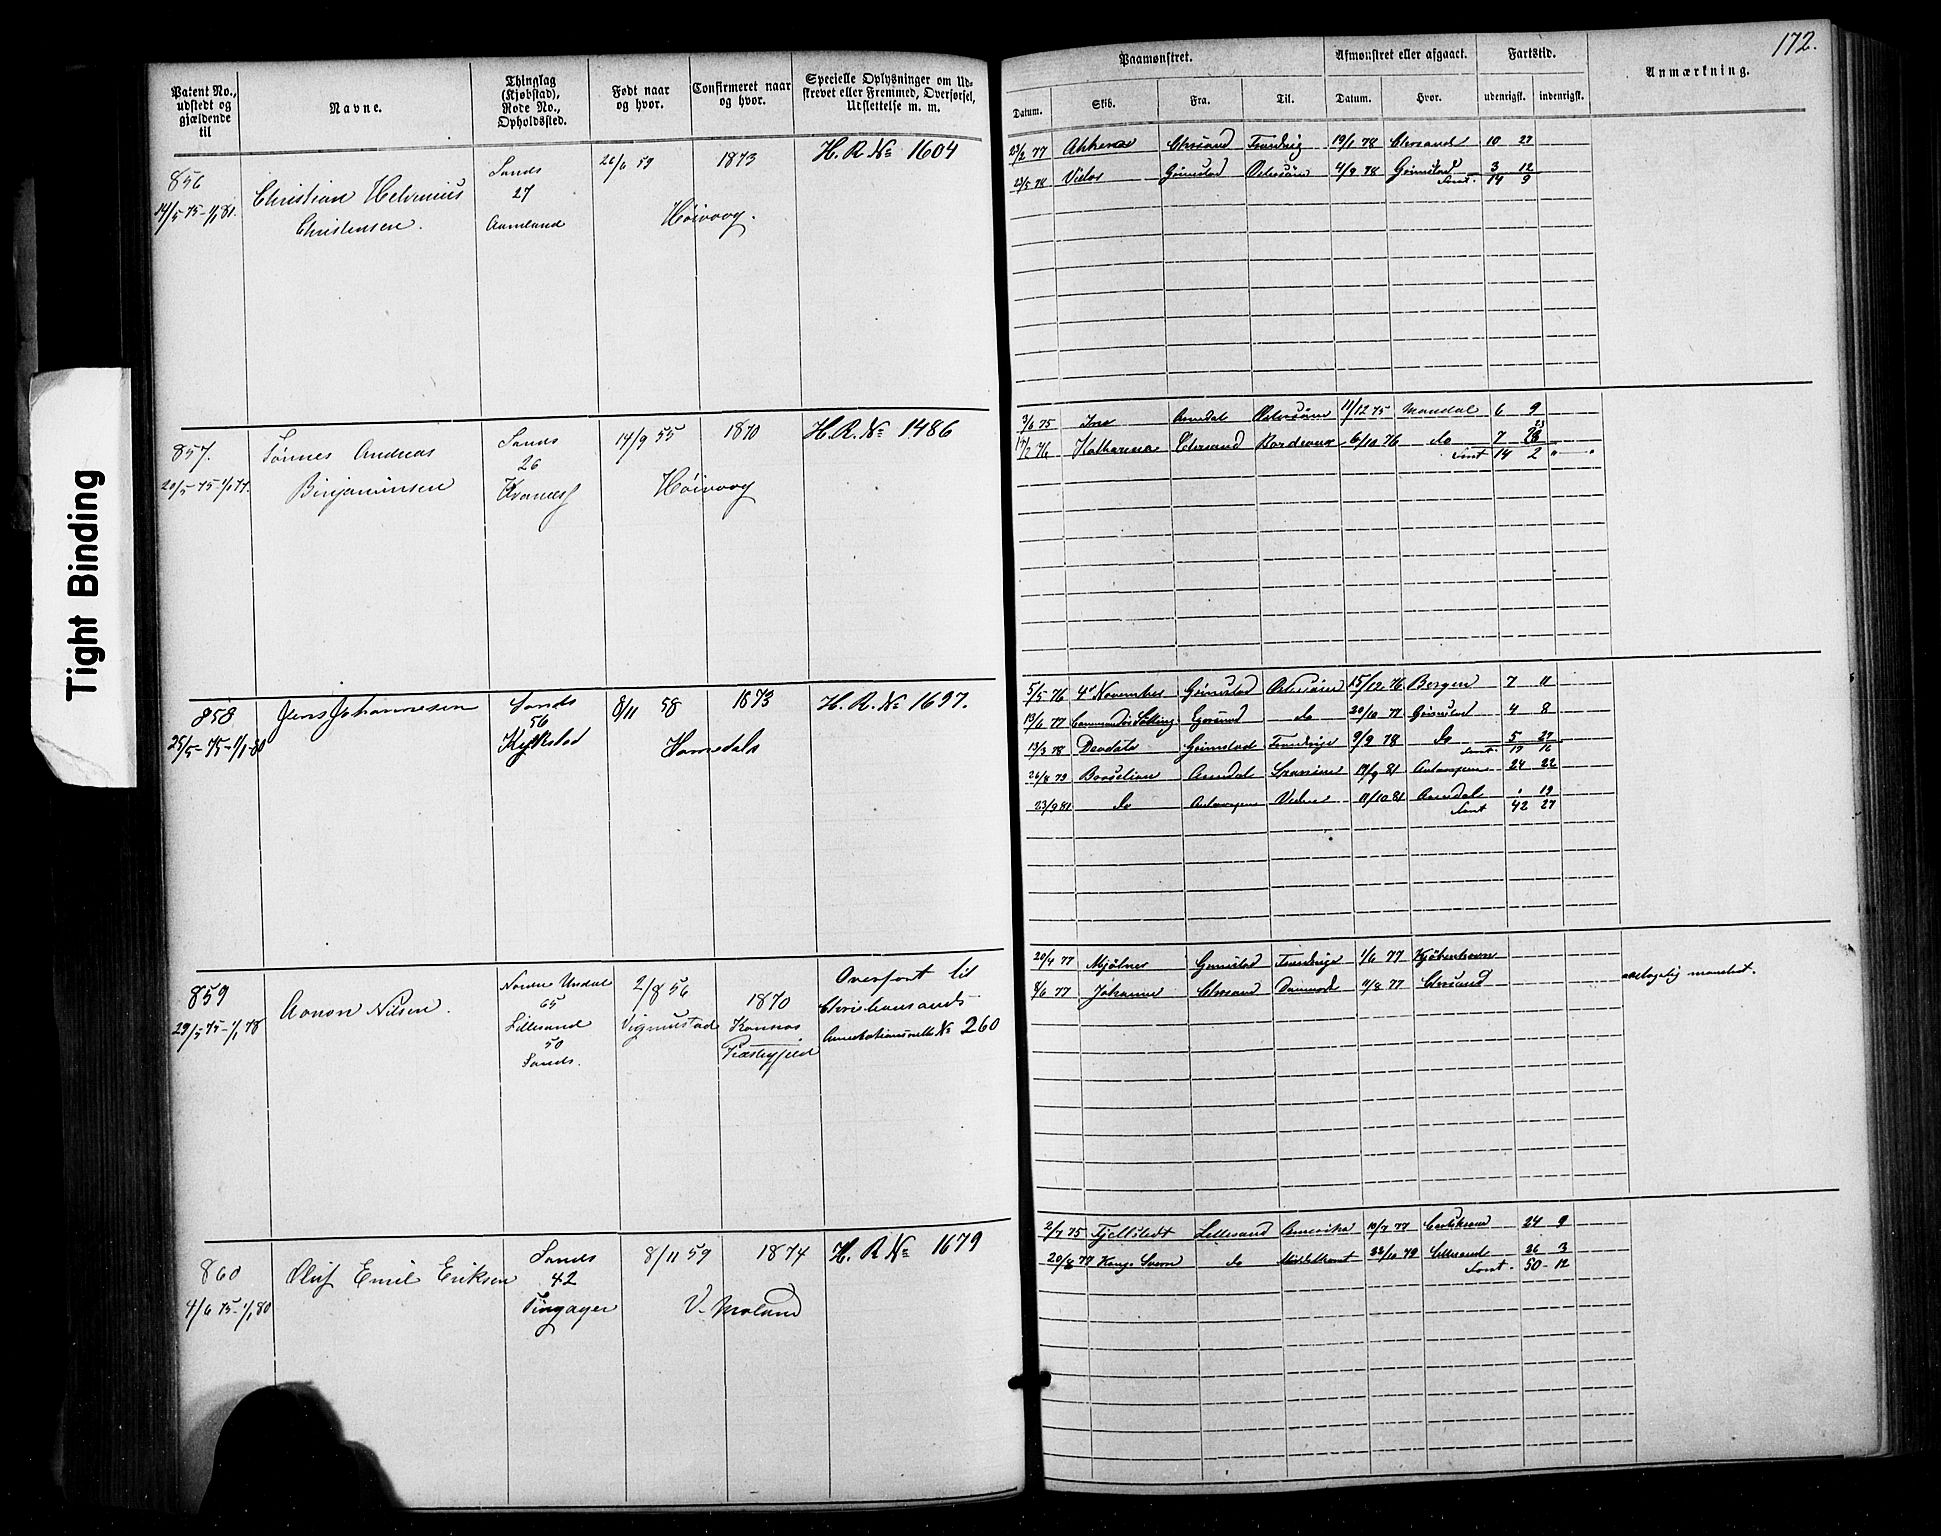 Tight Binding
Patent No., udstedt og gjældende til
Navne.
Thinglag (Kjøbstad), Rode No., Opholdssted.
Født naar og hvor.
Confirmeret naar og hvor.
Specielle Oplysninger om Udskrevet eller Fremmed, Overførsel, Udslettelse m. m.
Paamønstret.
Afmønstret eller afgaaet.
Fartstid.
Anmærkning.
172.
Datum.
Skib.
Fra.
Til.
Datum.
Hvor.
udenrigsk.
indenrigsk.
856
14/5 75 - 1/1 81.
Christian Helvinius
Christensen.
Sands
27
Aamland
26/6 59
1873
Høivaag.
H. R. No 1604
23/2 77 Chrsand 19/1 78 Chrsand 10 27
Grimstad Østersøen 4/9 78 Grimstad 3 12
Smt. 14 9
857.
20/5 75 - 1/1 77.
Tønnes Andreas
Binjaminsen
Sands
26
14/9 55
1870
Høivaag
H. R. No 1486
3/6 75 Arendal Østersøen 11/12 75 Mandal 6 9
17/2 76 Katharina Chrsand Bordeaux 6/10 76 do 7 23
Smt 14 2 " "
858
25/5 75 - 1/1 80
Jens Johannesen
Sands
56
8/11 58
1873
Homedals
H. R. No 1697.
5/5 76 4de November Grimstad Østersøen 15/12 76 Bergen 7 11
13/6 77 do 20/10 77 Grimstad 4 8
13/3 78 Deodata Grimstad 9/9 78 do 5 27
Smt 17 16
26/8 79 Arendal 17/9 81 Antwerpen 24 22
23/9 81 do Antwerpen 11/10 81 Arendal " 19
Smt 42 27
859
29/5 75 - 1/1 78
Aanon Nilsen.
Nordre Undal
65
Lillesand
50
Sands.
2/8 56
Vigmostad
1870
Præstegjeld
Overført til
Christiansands
Annotationsrulle No 260
20/4 77 Mjølner Grimstad 1/6 77 Kjøbenhavn
8/6 77 Johanne Chrsand Danmark 11/8 77 Chrsand
860
4/6 75 - 1/1 80
Oluf Emil Eriksen
Sands
42
Tingsager
8/11 59
1874
V. Moland
H. R. No 1679
2/7 75 Fjellstedt Lillesand Amerika 10/7 77 24 9
20/8 77 Kong Sverre do 22/10 79 Lillesand 26 3
Smt. 50 12